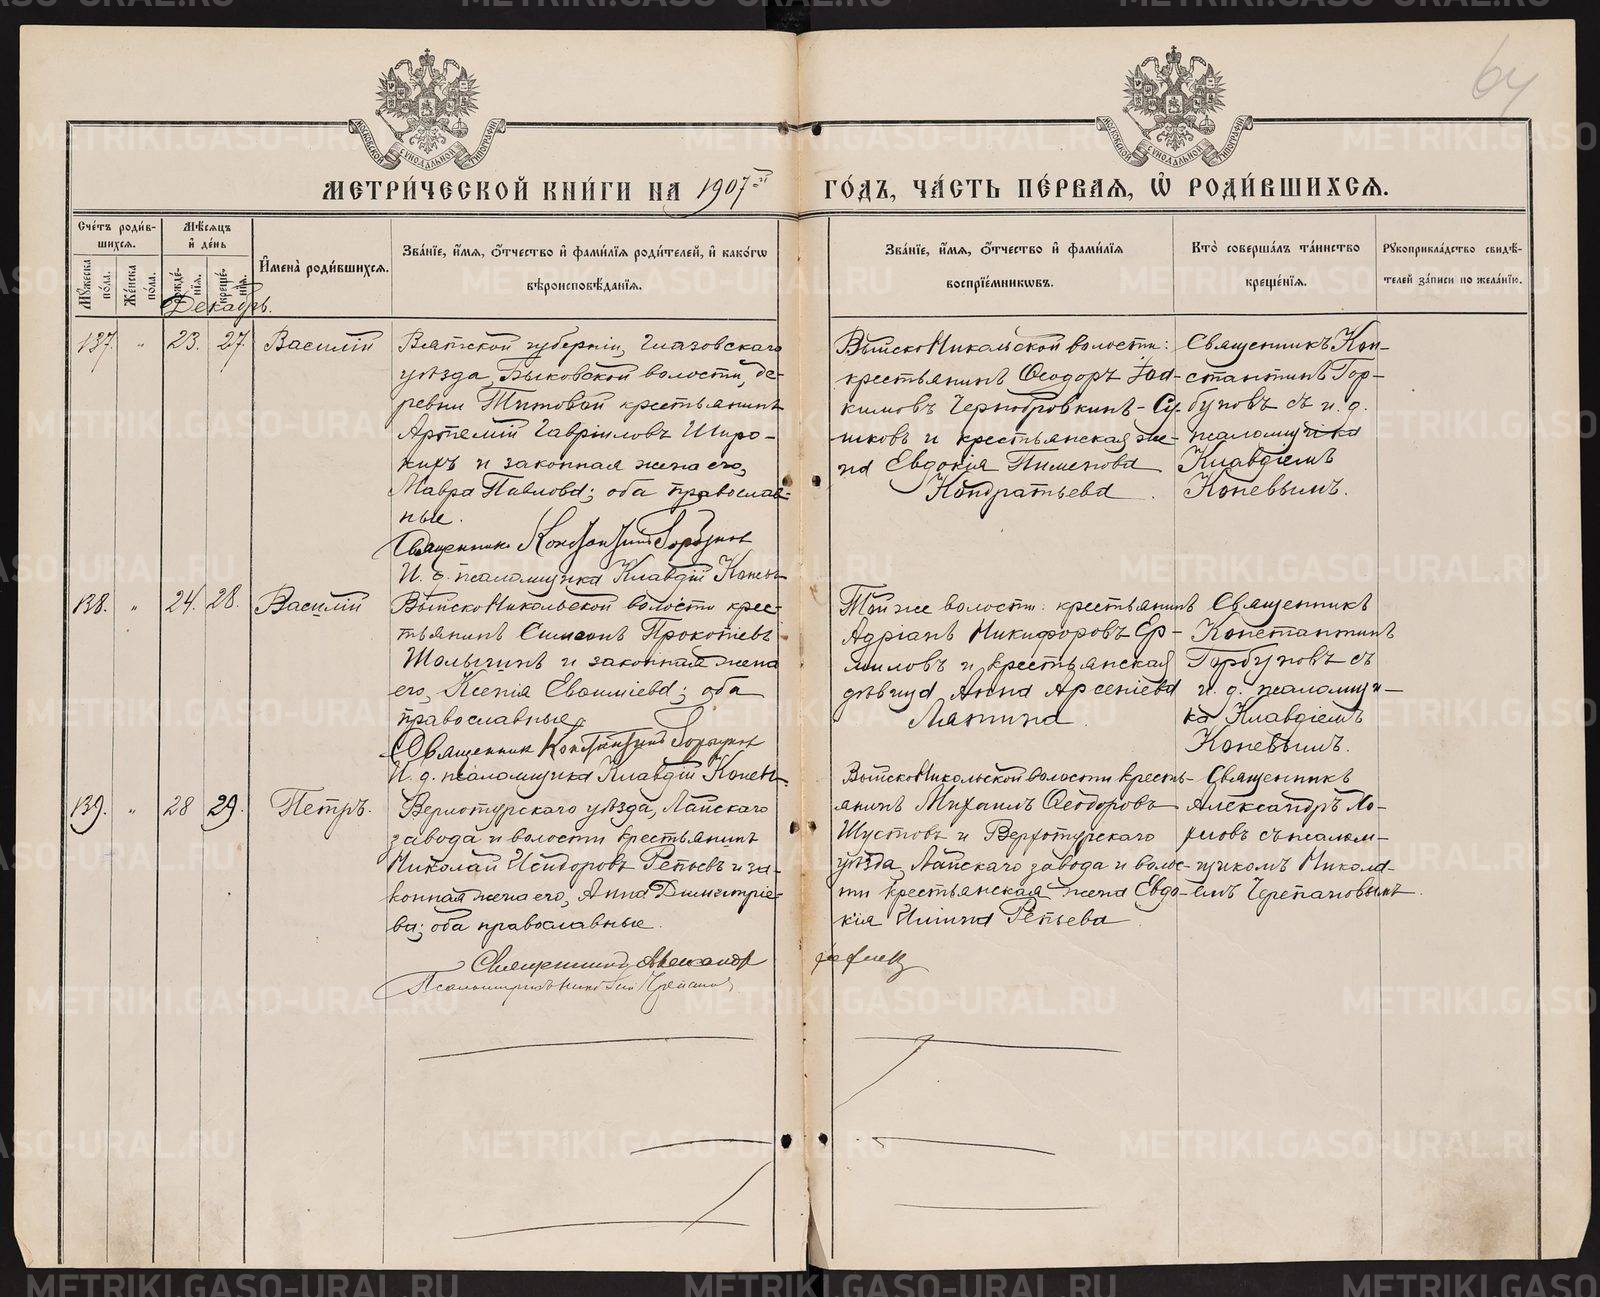 64
МОСКОВСКОЙ СѴНОДАЛЬНОЙ ТИПОГРАФІИ
МОСКОВСКОЙ СѴНОДАЛЬНОЙ ТИПОГРАФІИ
МЕТРИ́ЧЕСКОЙ КНИ́ГИ НА 1907й
ГО́ДЪ, ЧА́СТЬ ПЕ́РВАѦ, Ѡ҆ РОДИ́ВШИХСѦ.
Сче́тъ роди́в-
шихсѧ.
Мꙋ́жеска
по́ла.
Же́нска
по́ла.
Мѣ́сѧцъ
и҆ де́нь
рожде́-
нїѧ.
креще́-
нїѧ.
И҆мена̀ роди́вшихсѧ.
Зва́нїе, и҆́мѧ, ѻ҆́тчество и҆ фами́лїѧ роди́телей, и҆ како́гѡ
вѣроисповѣ́данїѧ.
Зва́нїе, и҆́мѧ, ѻ҆́тчество и҆ фами́лїѧ
воспрїе́мникѡвъ.
Кто̀ соверша́лъ та́инство
креще́нїѧ.
Рꙋкоприкла́дство свидѣ́-
телей за́писи по жела́нїю.
Декабрь.
137. " 23. 27. Василій
Вятской губерніи, Глазовскаго
уѣзда, Быковской волости, де-
ревни Титовой крестьянинъ
Артемій Гавріиловъ Широ-
кихъ и законная жена его,
Мавра Павлова; оба православ-
ные.
Священникъ Константинъ Горбуновъ
И. д. псаломщика Клавдій Коневъ
Выйско Никольской волости:
крестьянинъ Ѳеодоръ
кимовъ Чернобровкинъ-Су-
шковъ и крестьянская же-
на Евдокія Пименова
Кондратьева.
Священникъ Кон-
стантинъ Гор-
буновъ съ и. д.
псаломщика
Клавдіемъ
Коневымъ.
138. " 24. 28. Василій
Выйско Никольской волости крес-
тьянинъ Симеонъ Прокопіевъ
Шолыгинъ и законная жена
его, Ксенія Евѳиміева; оба
православные.
Священникъ Константинъ Горбуновъ
И. д. псаломщика Клавдій Коневъ
Той же волости: крестьянинъ
Адріанъ Никифоровъ Ер-
миловъ и крестьянская
дѣвица Анна Арсеніева
Лапина.
Священникъ
Константинъ
Горбуновъ съ
и. д. псаломщи-
ка Клавдіемъ
Коневымъ.
139. " 28 29. Петръ.
Верхотурскаго уѣзда, Лайскаго
завода и волости крестьянинъ
Николай Исидоровъ Репьевъ и за-
конная жена его, Анна Димитріе-
ва; оба православные.
Священникъ Александръ
Псаломщикъ Николай Черепановъ
Выйско Никольской волости кресть-
янинъ Михаилъ Ѳеодоровъ
Шустовъ и Верхотурскаго
уѣзда, Лайскаго завода и волос-
ти крестьянская жена Евдо-
кія Ильина Репьева
Священникъ
Александръ Хо-
рновъ съ псалом-
щикомъ Никола-
емъ Черепановымъ.